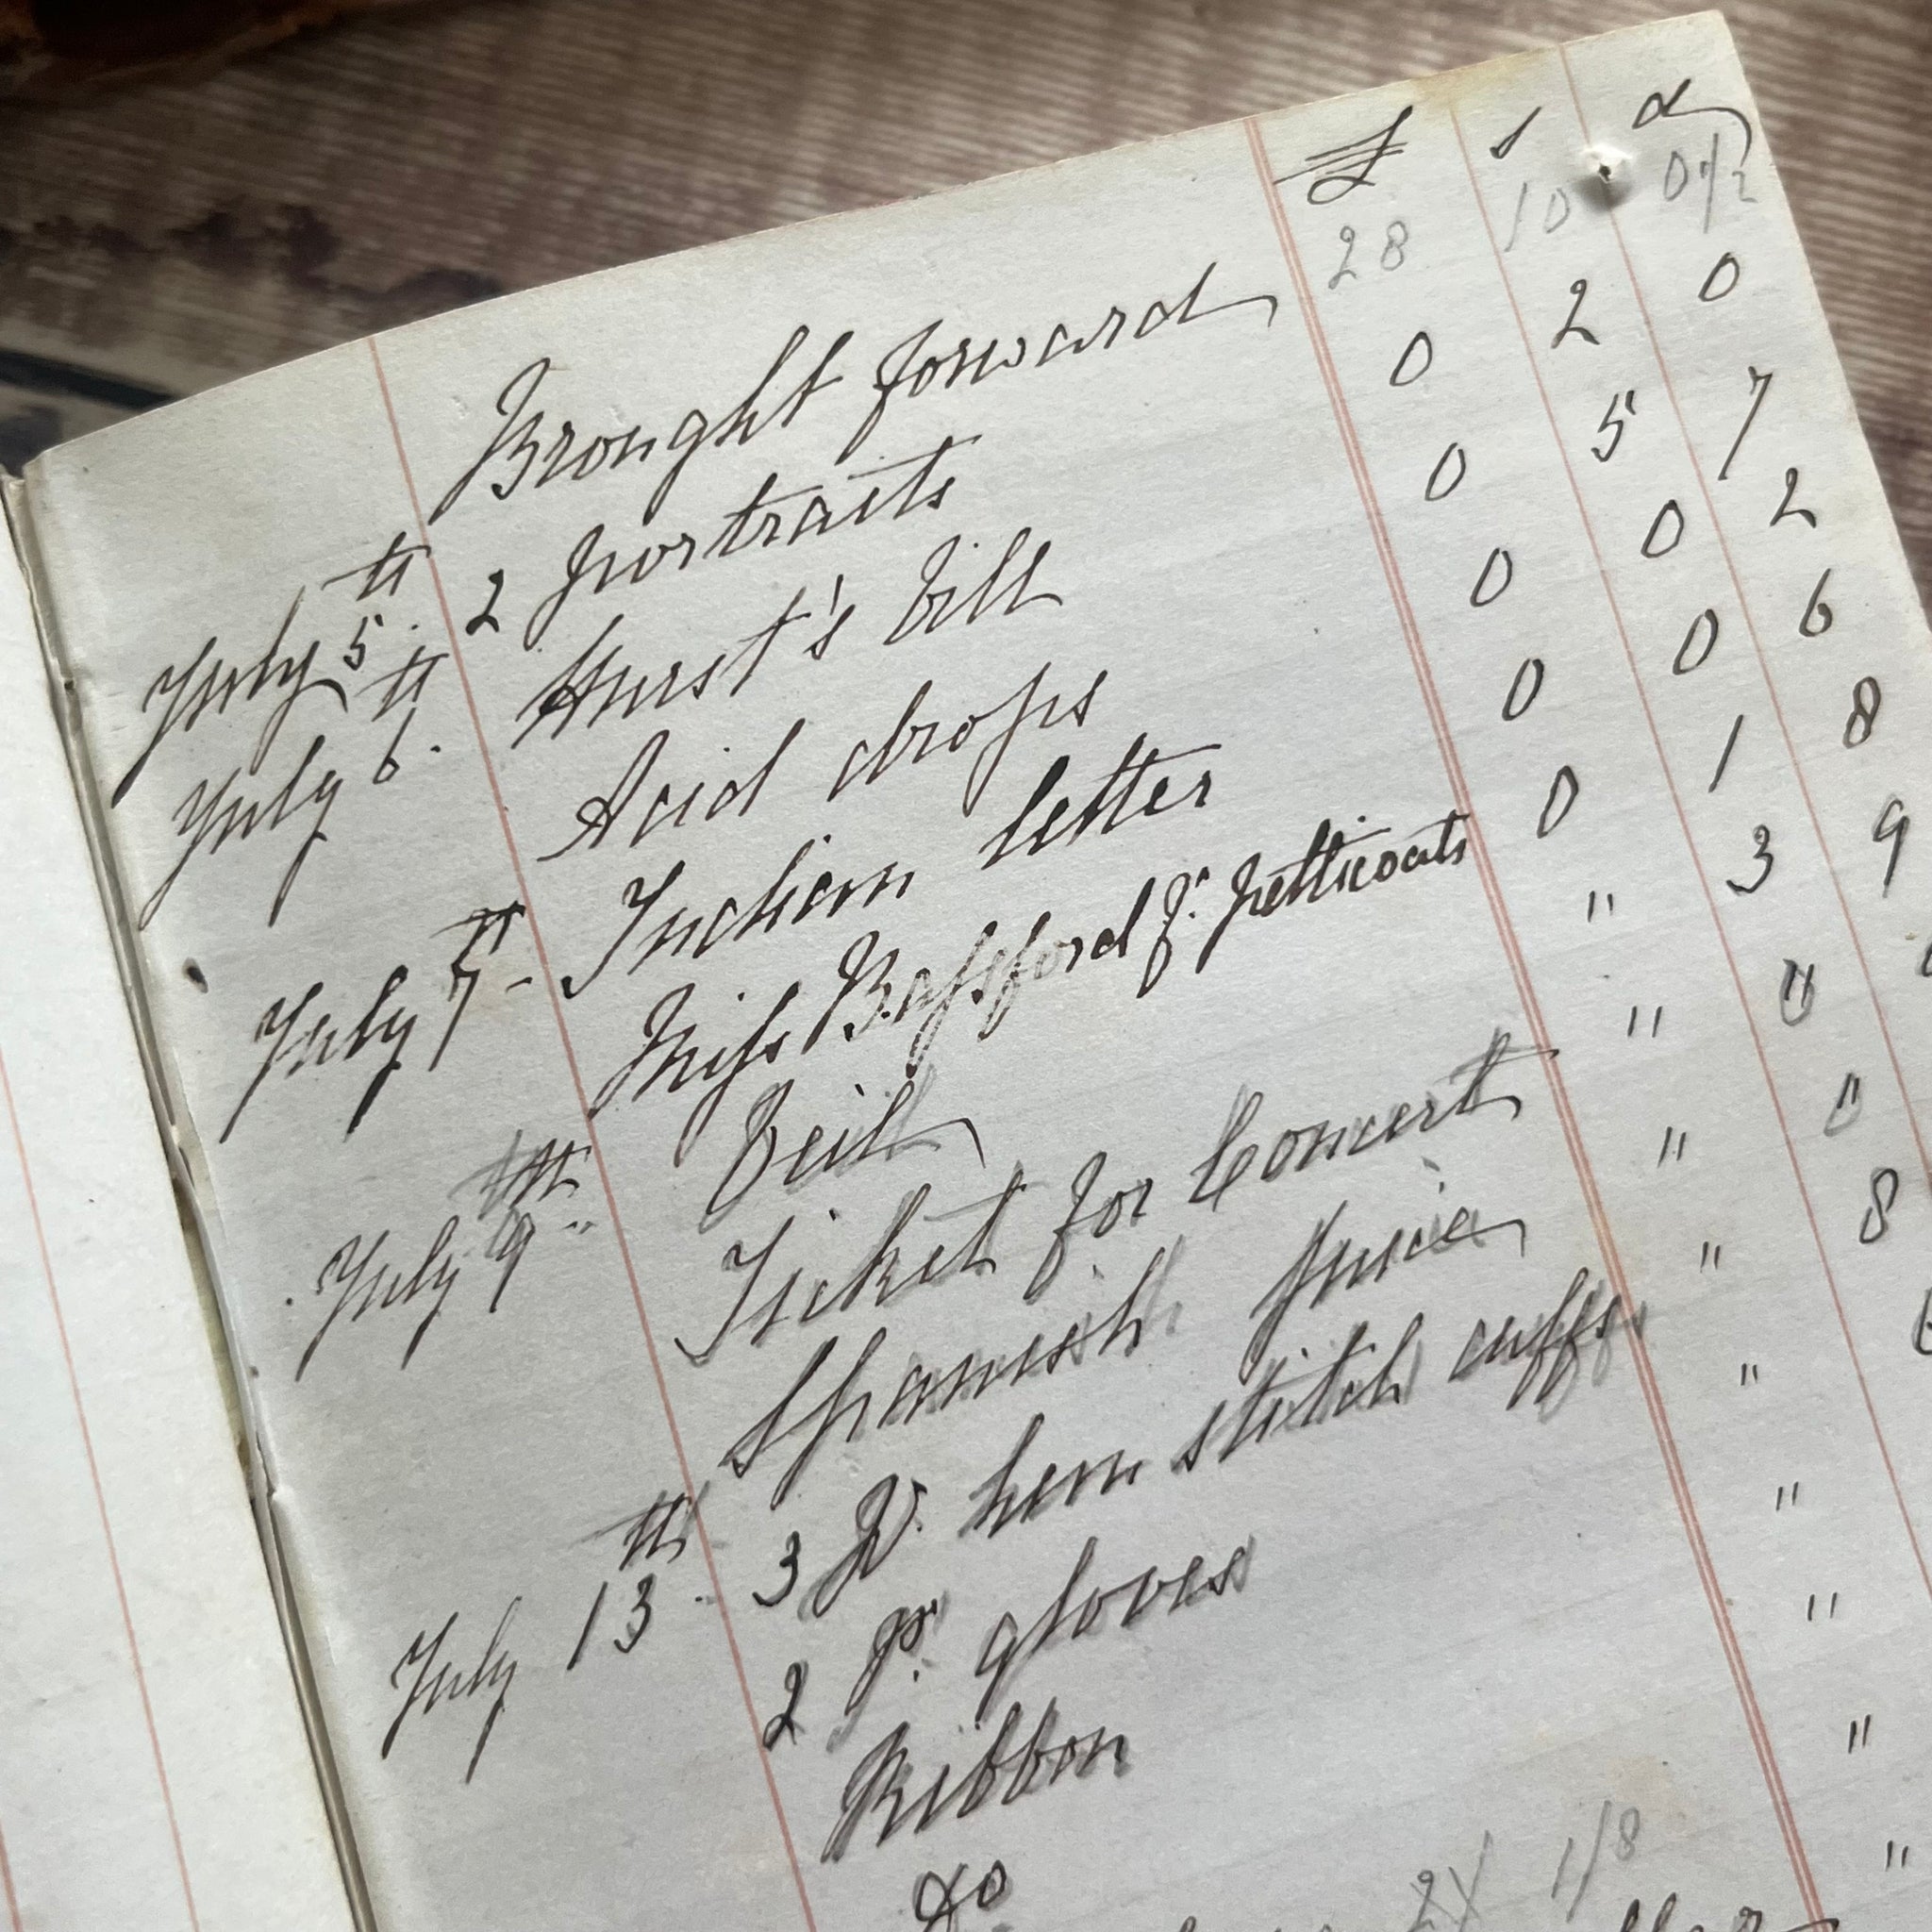 £ s d
Brought forward 28 10 0 1/2
July 5th. 2 portraits 0 2 0
July 6th. Hurst's bill 0 5 7
Acid drops 0 0 2
July 7th - Indian letter 0 0 6
Miss Bassford fr. petticoats 0 1 8
Veil " 3 9
July 9th Ticket for Concert "
Spanish Juice " "
July 13th. 3 Pr. hem stitch cuffs " 8
2 Pr. gloves "
Ribbon "
Do "
1/8 "